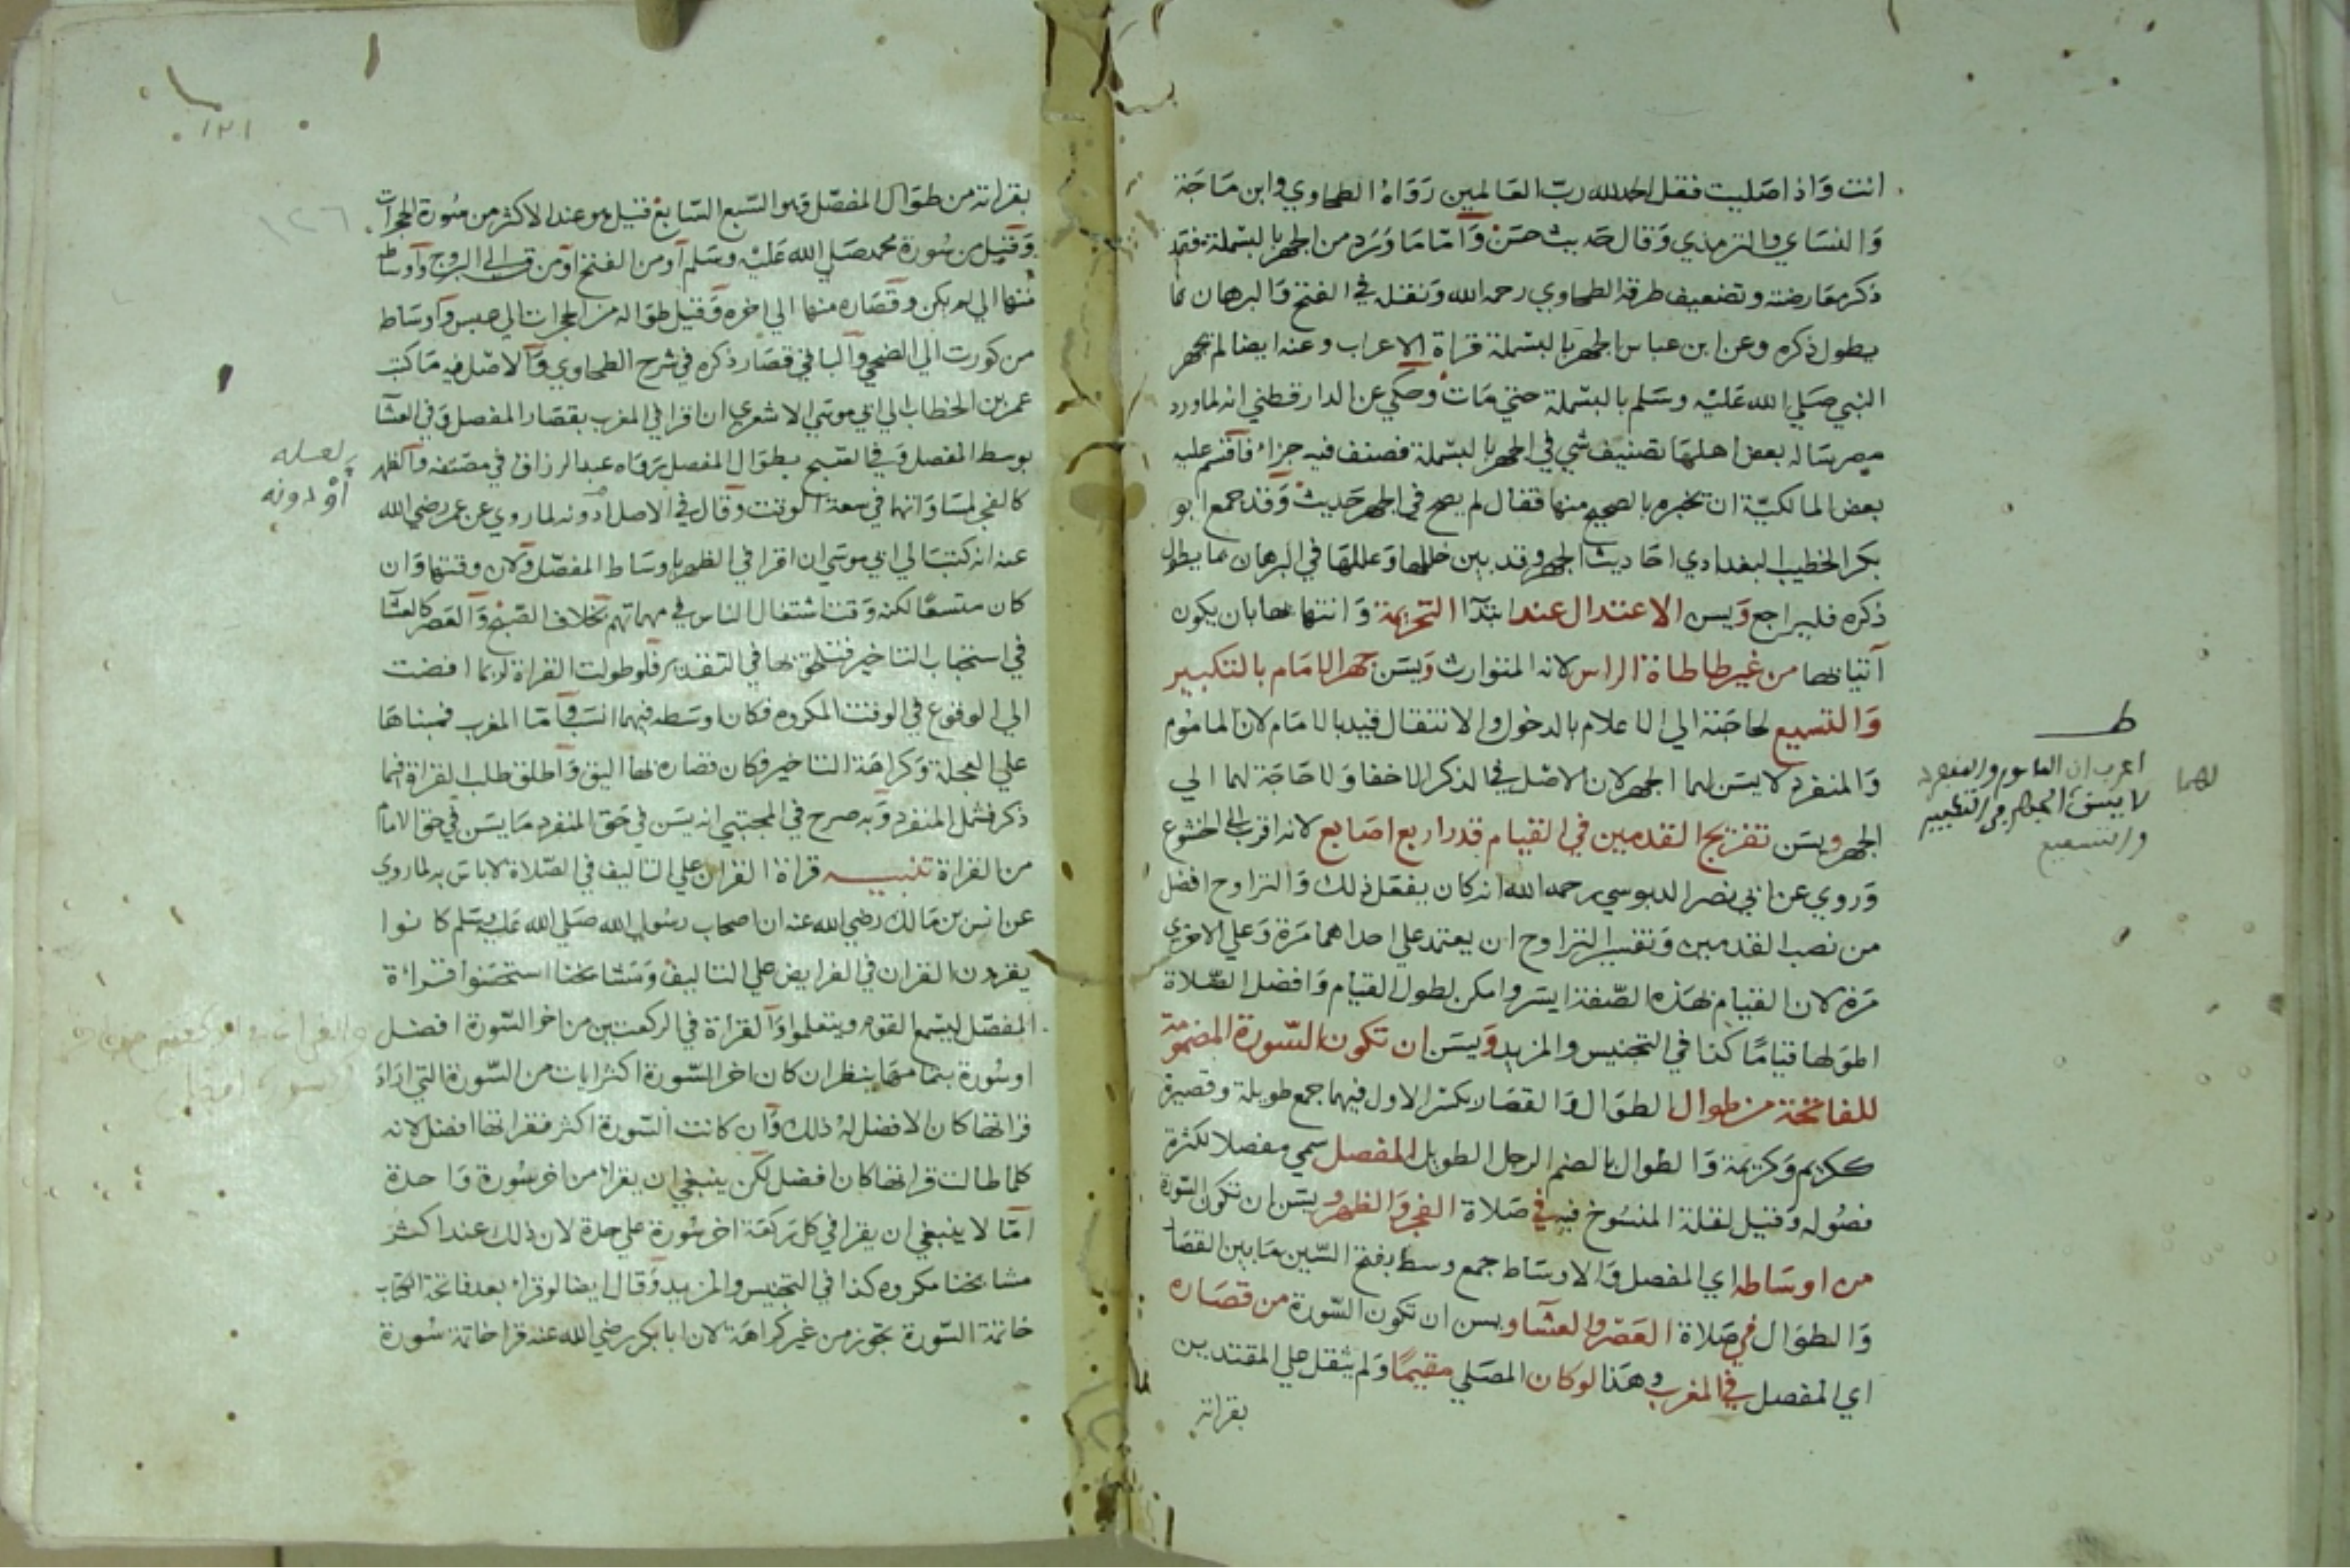 انت واذا صليت فقل الحمد لله رب العالمين رواه الطحاوي وابن ماجة
والنساي والترمذي وقال حديث حسن واما ما ورد من الجهر بالبسملة فقد
ذكر معارضته وتضعيف طرقه الطحاوي رحمه الله ونقله في الفتح والبرهان مما
يطول ذكره وعن ابن عباس الجهر بالبسملة قراة الاعراب وعنه ايضا لم يجهر
النبي صلي الله عليه وسلم بالبسملة حتي مات وحكي عن الدارقطني انه لما ورد
مصر ساله بعض اهلها تصنيف شي في الجهر بالبسملة فصنف فيه جزاء فاقسم عليه
بعض المالكية ان يخبره بالصحيح منها فقال لم يصح في الجهر حديث وقد جمع ابو
بكر الخطيب البغدادي احاديث الجهر وقد بين خللها وعللها في البرهان مما يطول
ذكره فليراجع ويسن الاعتدال عند ابتدآ التحريمة وانتهاها بان يكون
آتيا بها من غير طاطاة الراس لانه المتوارث ويسن جهر الامام بالتكبير
والتسميع لحاجته الي الاعلام بالدخول والانتقال قيد بالامام لان الماموم
والمنفرد لا يسن لهما الجهر لان الاصل في الذكر الاخفا ولا حاجة لهما الي
الجهر ويسن تفريج القدمين في القيام قدر اربع اصابع لانه اقرب الي الخشوع
وروي عن ابي نصر الدبوسي رحمه الله انه كان يفعل ذلك والتراوح افضل
من نصب القدمين وتفسير التراوح ان يعتمد علي احداهما مرة وعلي الاخري
مرة لان القيام بهذه الصفة ايسر وامكن لطول القيام وافضل الصلاة
اطولها قياما كذا في التجنيس والمزيد ويسن ان تكون السورة المضمومة
للفاتحة من طوال الطوال والقصار بكسر الاول فيهما جمع طويلة وقصيرة
ككريم وكريمة والطوال بالضم الرجل الطويل المفصل سمي مفصلا لكثرة
فصوله وقيل لقلة المنسوخ فيه في صلاة الفجر والظهر ويسن ان تكون السورة
من اوساطه اي المفصل والاوساط جمع وسط بفتح السين ما بين القصار
والطوال في صلاة العصر والعشا ويسن ان تكون السورة من قصاره
اي المفصل في المغرب وهذا لو كان المصلي مقيما ولم يثقل علي المقتدين
بقراته
ط
اعرب ان الماموم والمنفرد
لا يسن لهما الجهر في التكبير
والتسميع
١٢١
١٢٦
بقراته من طوال المفصل وهو السبع السابع قيل هو عند الاكثر من سورة الحجرات
وقيل من سورة محمد صلي الله عليه وسلم او من الفتح او من ق الي البروج واوساطه
منها الي لم يكن وقصاره منها الي اخره وقيل طواله من الحجرات الي عبس واوساطه
من كورت الي الضحي والباقي قصار ذكره في شرح الطحاوي والاصل فيه ما كتب
عمر بن الخطاب الي ابي موسي الاشعري ان اقرا في المغرب بقصار المفصل وفي العشآ
بوسط المفصل وفي الصبح بطوال المفصل رواه عبد الرزاق في مصنفه والظهر
كالفجر لمساواتهما في سعة الوقت وقال في الاصل ادونه لما روي عن عمر رضي الله
عنه انه كتب الي ابي موسي ان اقرا في الظهر باوساط المفصل ولان وقتها وان
كان متسعا لكنه وقت اشتغال الناس في مهماتهم بخلاف الصبح والعصر كالعشآ
في استحباب التاخير فتلحق بها في التقدير فلو طولت القراة لربما افضت
الي الوقوع في الوقت المكروه فكان اوسطه فيهما انسب واما المغرب فمبناها
علي العجلة وكراهة التاخير فكان قصاره بها اليق واطلق طلب القراة فيما
ذكر فشمل المنفرد وبه صرح في المجتبي انه يسن في حق المنفرد ما يسن في حق الامام
من القراة تنبيه قراة القران علي التاليف في الصلاة لا باس به لما روي
عن انس بن مالك رضي الله عنه ان اصحاب رسول الله صلي الله عليه وسلم كانوا
يقرءون القران في الفرايض علي التاليف ومشايخنا استحسنوا قراءة
المفصل ليسمع القوم ويتعلموا والقراة في الركعتين من اخر السورة افضل
او سورة بتمامها ينظر ان كان اخر السورة اكثر ايات من السورة التي اراد
قراتها كان الافضل له ذلك وان كانت السورة اكثر فقراتها افضل لانه
كلما طالت قراتها كان افضل لكن ينبغي ان يقراء من اخر سورة واحدة
اما لا ينبغي ان يقرا في كل ركعة اخر سورة علي حدة لان ذلك عند اكثر
مشايخنا مكروه كذا في التجنيس والمزيد وقال ايضا لو قراء بعد فاتحة الكتاب
خاتمة السورة يجوز من غير كراهة لان ابا بكر رضي الله عنه قرا خاتمة سورة
لعله
او دونه